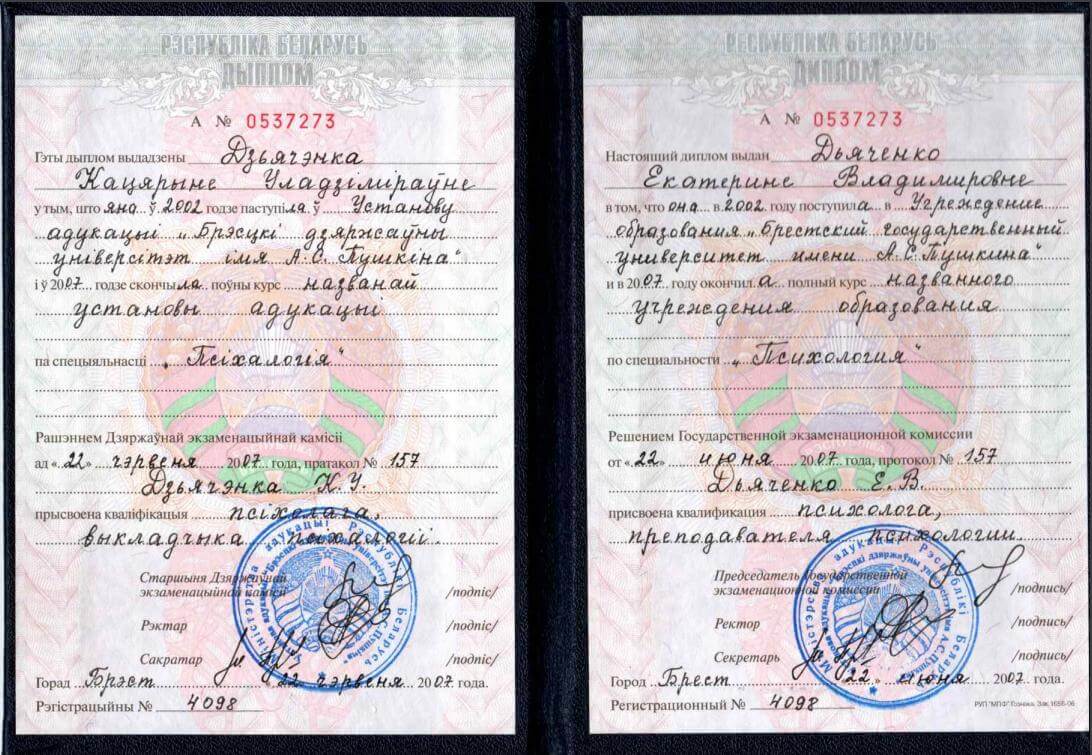 РЭСПУБЛІКА БЕЛАРУСЬ
ДЫПЛОМ
А № 0537273
Гэты дыплом выдадзены Дзьячэнка
Кацярыне Уладзіміраўне
у тым, што яна ў 2002 годзе паступіла ў Установу
адукацыі „Брэсцкі дзяржаўны
ўніверсітэт імя А.С. Пушкіна“
і ў 2007 годзе скончыла поўны курс названай
установы адукацыі
па спецыяльнасці „Псіхалогія“
Рашэннем Дзяржаўнай экзаменацыйнай камісіі
ад «22» чэрвеня 2007 года, пратакол № 157
Дзьячэнка К.У.
прысвоена кваліфікацыя псіхолага,
выкладчыка псіхалогіі.
Старшыня Дзяржаўнай
экзаменацыйнай камісіі /подпіс/
Рэктар /подпіс/
Сакратар /подпіс/
Горад Брэст «22» чэрвеня 2007 года.
Рэгістрацыйны № 4098
РЕСПУБЛИКА БЕЛАРУСЬ
ДИПЛОМ
А № 0537273
Настоящий диплом выдан Дьяченко
Екатерине Владимировне
в том, что она в 2002 году поступила в Учреждение
образования „Брестский государственный
университет имени А.С. Пушкина“
и в 2007 году окончила полный курс названного
учреждения образования
по специальности „Психология“
Решением Государственной экзаменационной комиссии
от «22» июня 2007 года, протокол № 157
Дьяченко Е.В.
присвоена квалификация психолога,
преподавателя психологии.
Председатель Государственной
экзаменационной комиссии /подпись/
Ректор /подпись/
Секретарь /подпись/
Город Брест «22» июня 2007 года.
Регистрационный № 4098
РУП "МПФ" Гознака. Зак. 1656-06